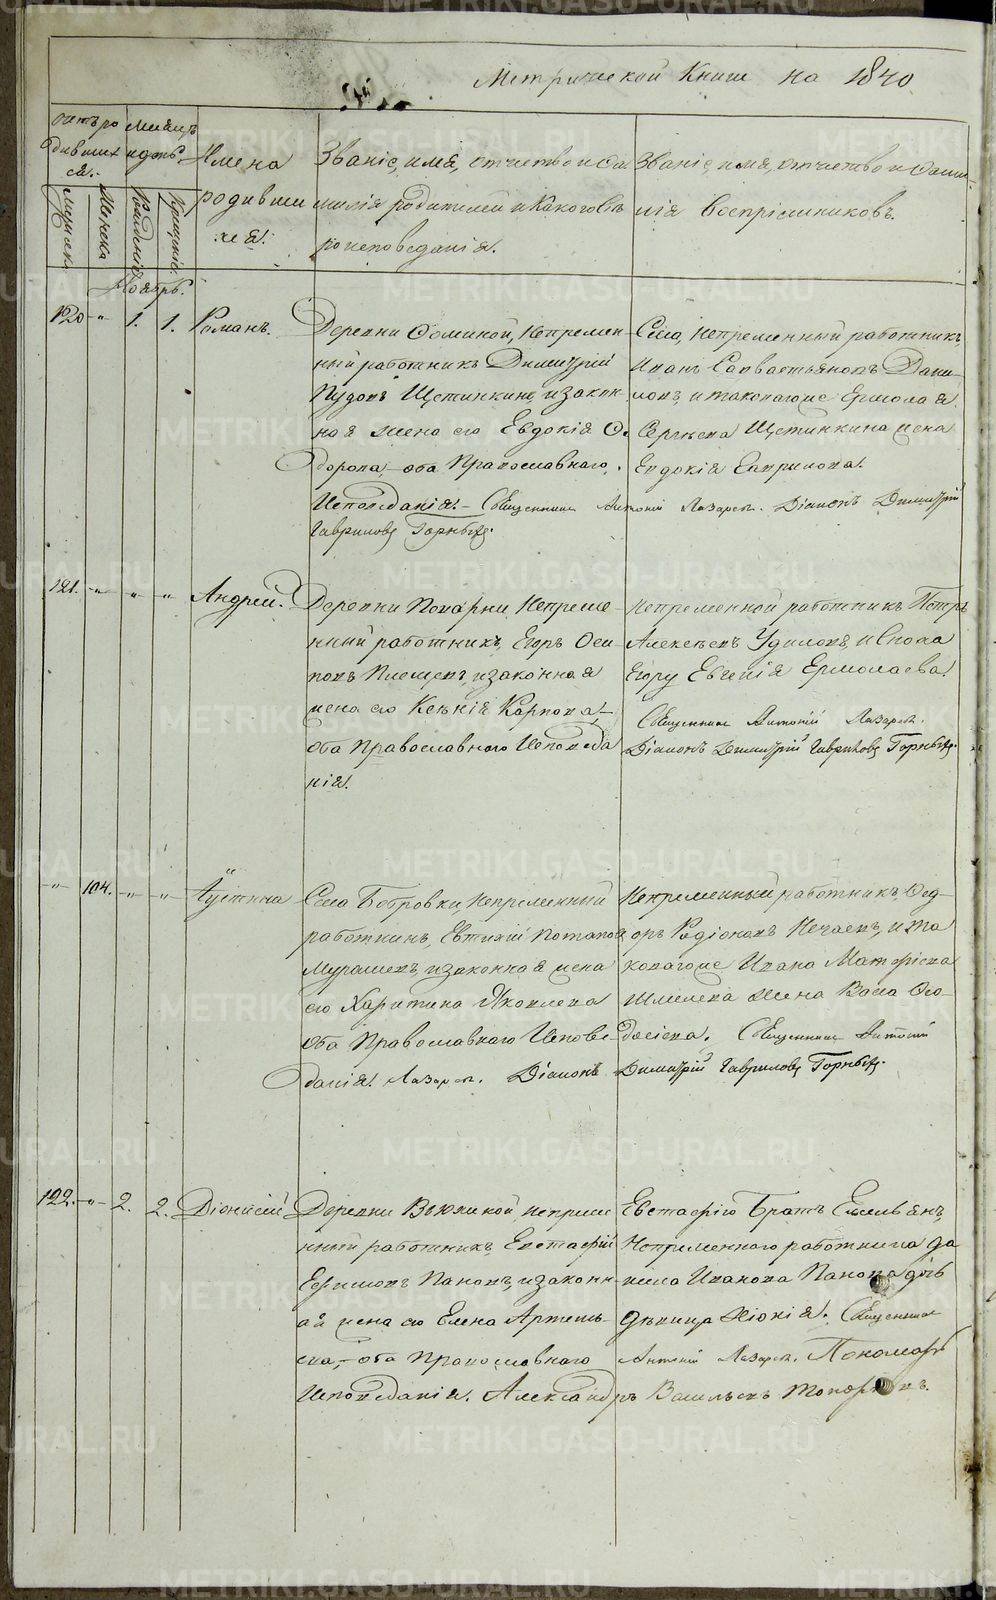 Метрической Книги на 1840
Счетъ ро
дивших
ся.
Мужеска
Женска
Мѣсяцъ
и день.
Рожденія
Крещенія.
Имена
родивши
хся.
Званіе, имя, отчество и фа
милія родителей и какого вѣ
роисповеданія.
Званіе, имя, отчество и фами-
лія Воспріемниковъ.
Ноябрь.
120 -"- 1. 1. Романъ.
Деревни Фоминой, Непремен-
ный работникъ Димитрій
Пудовъ Щетинкинъ, и закон-
ная жена его Евдокія Ѳ.
дорова оба Православнаго
Исповеданія. - Священникъ Антоній Лазаревъ. Діаконъ Димитрій
Гавриловъ
Села, Непременный работникъ,
Иванъ Савастьяновъ Дани-
ловъ, и таковагоже Ермолая
Сергѣева Щетинкина жена
Евдокія Гаврилова.
121. -"- " " Андрей.
Деревни Поварни, Непреме-
нный работникъ, Егоръ Оси-
повъ и законная
жена его Ксенія Карпова,
оба Православнаго Исповеда
нія.
Непременной работникъ Петръ
Алексѣевъ Удиловъ, и Сноха
Егору Евгенія Ермолаева.
Священникъ Антоній Лазаревъ.
Діаконъ Димитрій Гавриловъ
-"- 104. -"- -"- Іустина
Села Бобровки, Непременный
работникъ, Евтихій Потапов
Мурашевъ, и законная жена
его Харитина Яковлева
Оба Православнаго Испове-
данія. Лазаревъ. Діаконъ Димитрій Гавриловъ
Непременный работникъ, Фед-
оръ Родіоновъ Нечаевъ, и та
ковагоже Ивана Матфіева
Шмелева жена Васса Фео-
досіева. Священникъ Антоній
122. -"- 2. 2. Діонисій
Деревни непреме
нный работникъ, Евстафій
Ефимовъ Пановъ, и законн-
ая жена его Елена Артемь-
ева, - оба Православнаго
Исповеданія. Александръ Васильевъ Топорковъ.
Евстафію Братъ Емельянъ,
Непременнаго работника Да
нила Иванова Панова дочь
дѣвица Хіонія. Священникъ
Антоній Лазаревъ. Пономарь
METRIKI.GASO-URAL.RU